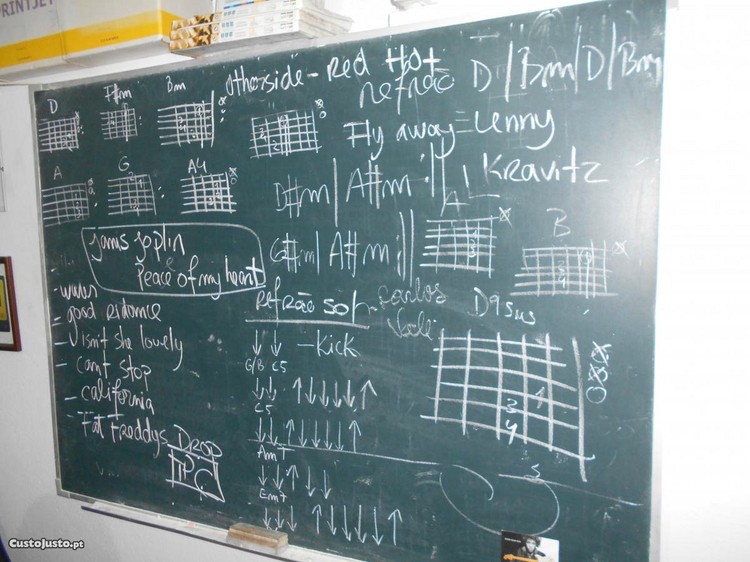 PRINTJET
D F#m Bm
otherside - Red Hot
refrão D | Bm | D | Bm
Fly away = Lenny
Kravitz
A G A4
D#m | A#m :||
A
B
G#m | A#m :||
Janis Joplin
Peace of my heart
good ridance
isn't she lovely
can't stop
california
Fat Freddys Drop
Refrão Sol - Carlos
D9sus
↓ ↓ - Kick
G/B C5
↓ ↓ ↑ ↓ ↓ ↓ ↓ ↑
C5
↓ ↓ ↑ ↓ ↓ ↓ ↓ ↑
Am7
↓ ↓ ↑ ↓ ↓
Em7
↓ ↓ ↑ ↓ ↓ ↓ ↓ ↑
3 4
3
4
5
CustoJusto.pt